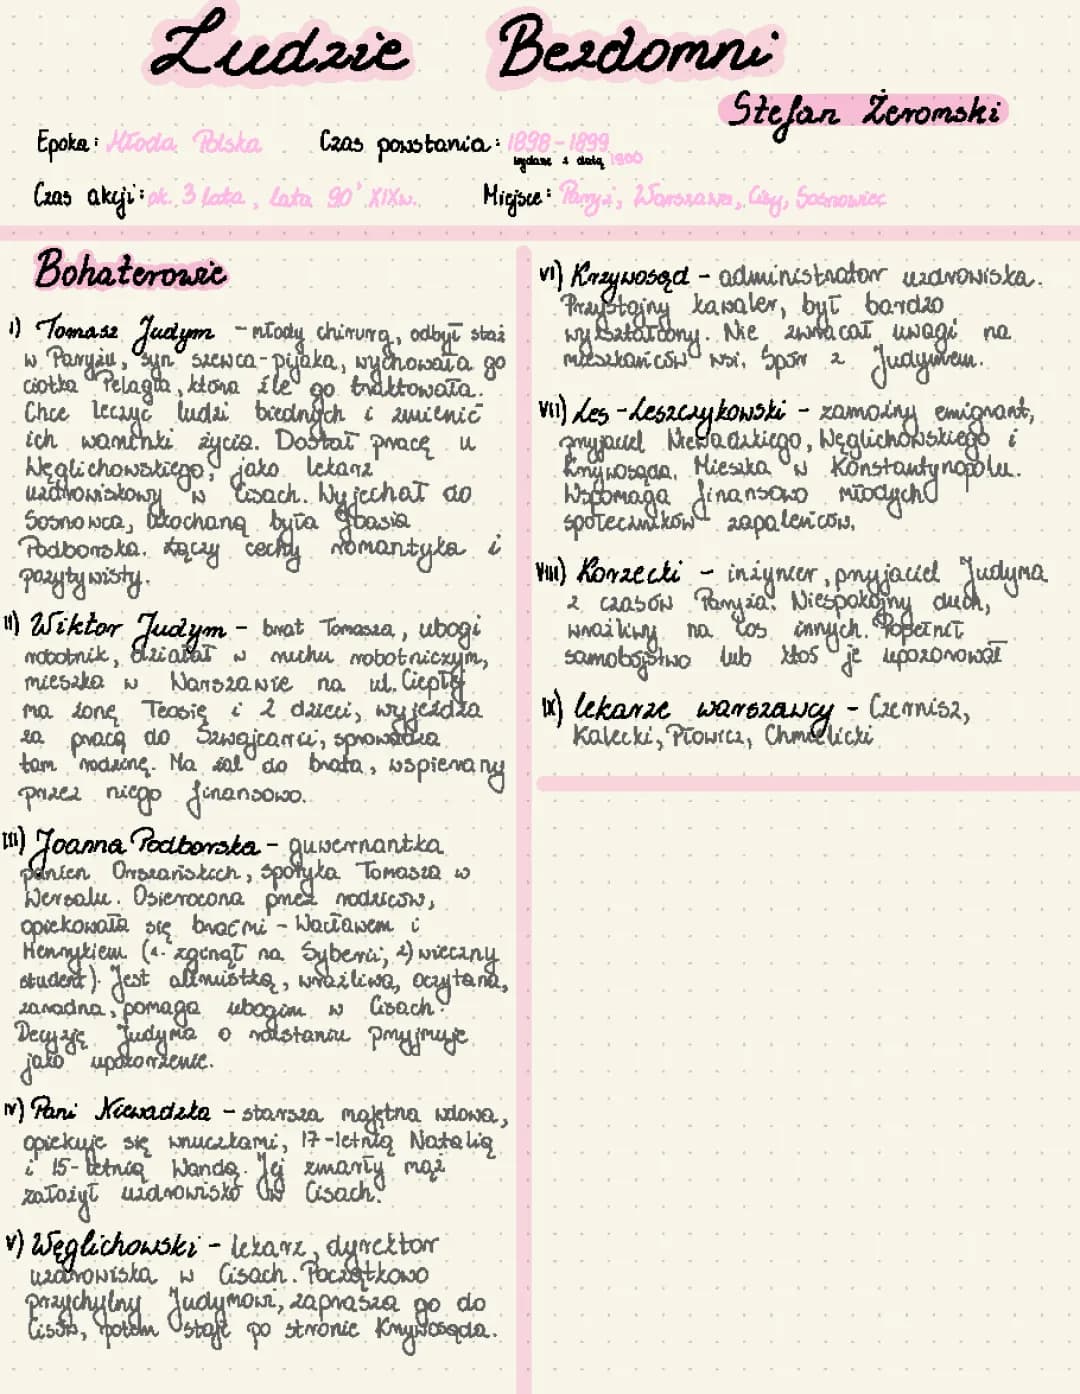 Ludzie Bezdomni
Stefan Żeromski
Epoka: Młoda Polska Czas powstania: 1898-1899
wydane z datą 1900
Czas akcji: ok. 3 lata, lata 90' XIXw. Miejsce: Paryż, Warszawa, Cisy, Sosnowiec
Bohaterowie
I) Tomasz Judym - młody chirurg, odbył staż
w Paryżu, syn szewca-pijaka, wychowała go
ciotka Pelagia, która źle go traktowała.
Chce leczyć ludzi biednych i zmienić
ich warunki życia. Dostał pracę u
Węglichowskiego, jako lekarz
uzdrowiskowy w Cisach. Wyjechał do
Sosnowca, ukochaną była Joasia
Podborska. Łączy cechy romantyka i
pozytywisty.
II) Wiktor Judym - brat Tomasza, ubogi
robotnik, działał w ruchu robotniczym,
mieszka w Warszawie na ul. Ciepłej
ma żonę Teosię i 2 dzieci, wyjeżdża
za pracą do Szwajcarii, sprowadza
tam rodzinę. Ma żal do brata, wspierany
przez niego finansowo.
III) Joanna Podborska - guwernantka
panien Orszańskich, spotyka Tomasza w
Wersalu. Osierocona przez rodziców,
opiekowała się braćmi - Wacławem i
Henrykiem (1. zginął na Syberii, 2) wieczny
student). Jest altruistką, wrażliwa, oczytana,
zaradna, pomaga ubogim w Cisach.
Decyzję Judyma o rozstaniu przyjmuje
jako upokorzenie.
IV) Pani Niewadzka - starsza majętna wdowa,
opiekuje się wnuczkami, 17-letnią Natalią
i 15-letnią Wandą. Jej zmarły mąż
założył uzdrowisko w Cisach.
V) Węglichowski - lekarz, dyrektor
uzdrowiska w Cisach. Początkowo
przychylny Judymowi, zaprasza go do
Cisów, potem staje po stronie Krzywosąda.
VI) Krzywosąd - administrator uzdrowiska.
Przystojny kawaler, był bardzo
wykształcony. Nie zwracał uwagi na
mieszkańców wsi. Spór z Judymem.
VII) Les - Leszczykowski - zamożny emigrant,
przyjaciel Niewadzkiego, Węglichowskiego i
Krzywosąda. Mieszka w Konstantynopolu.
Wspomaga finansowo młodych
społeczników zapaleńców.
VIII) Korzecki - inżynier, przyjaciel Judyma
z czasów Paryża. Niespokojny duch,
wrażliwy na los innych. Popełnił
samobójstwo lub ktoś je upozorował
IX) lekarze warszawscy - Czernisz,
Kalecki, Płowicz, Chmielicki